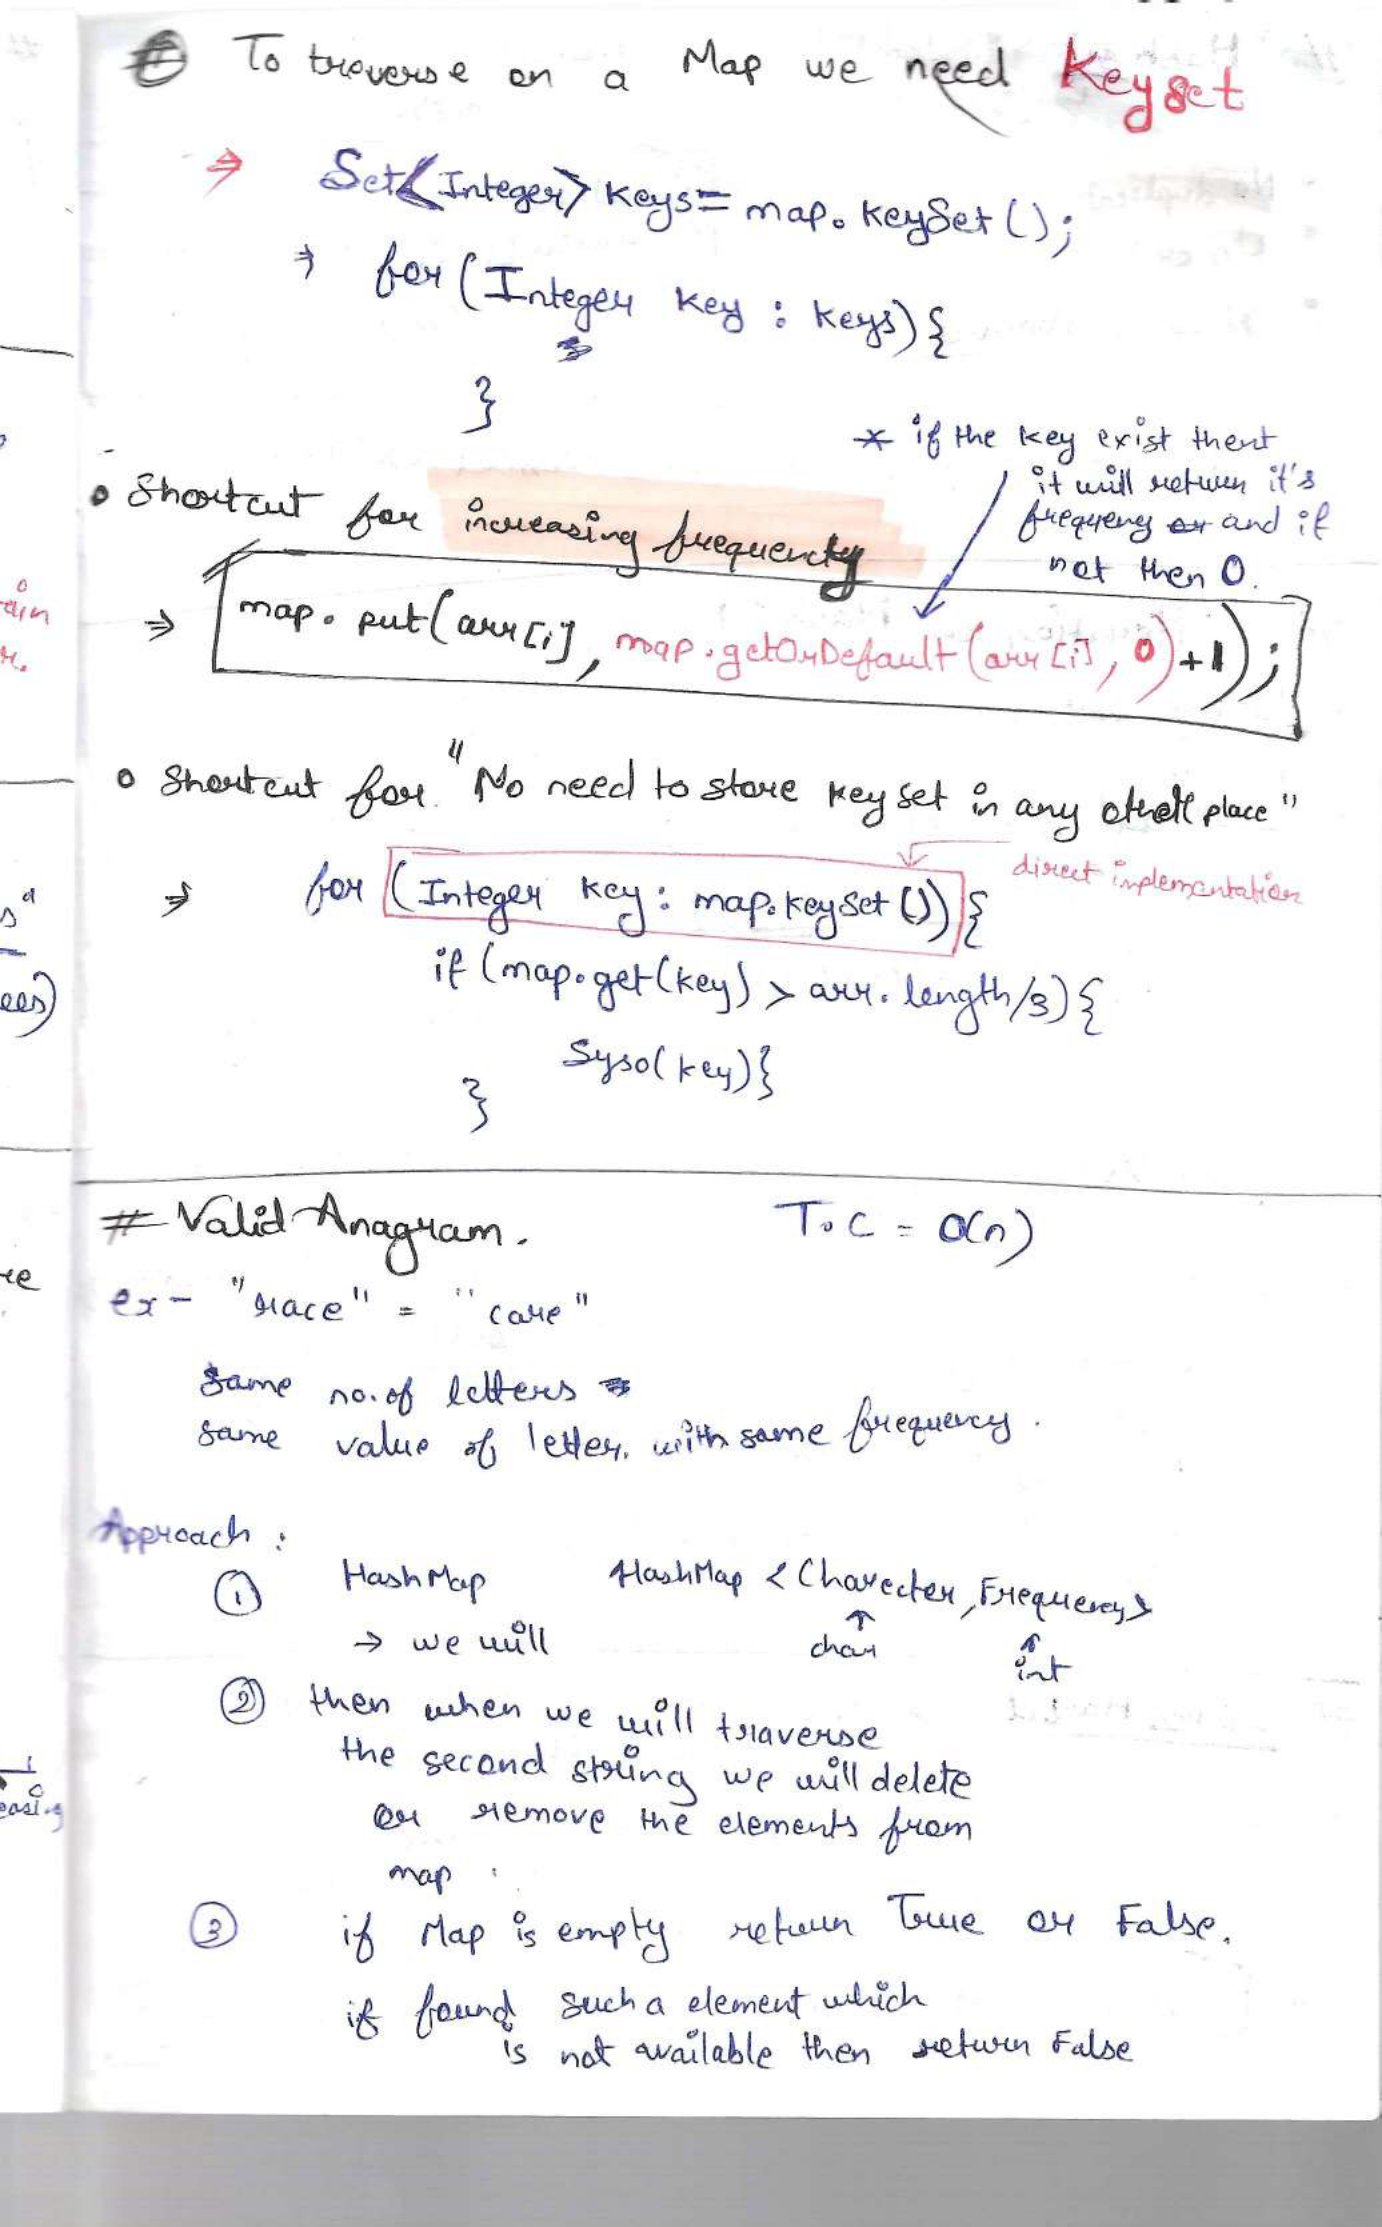 # To treverse on a Map we need Keyset
⇒ Set<Integer> keys = map.keySet();
⇒ for (Integer key : keys) {
}
* if the key exist thent
it will return it's
frequeny and if
not then 0.
• Shortcut for increasing frequency
⇒ map.put(arr[i], map.getOrDefault(arr[i], 0)+1);
• Shortcut for "No need to store keyset in any other place"
direct implementation
⇒ for (Integer key : map.keySet()) {
if (map.get(key) > arr.length/3) {
Syso(key)}
}
# Valid Anagram. T.C = O(n)
ex - "race" = "care"
same no. of letters
same value of letter. with same frequency.
Approach :
① HashMap HashMap <Charecter, Frequency>
→ we will ↑ char ↑ int
② then when we will traverse
the second string we will delete
or remove the elements from
map.
③ if Map is empty return True or False.
if found such a element which
is not available then return False
ain
r.
s"
ees)
re
easing